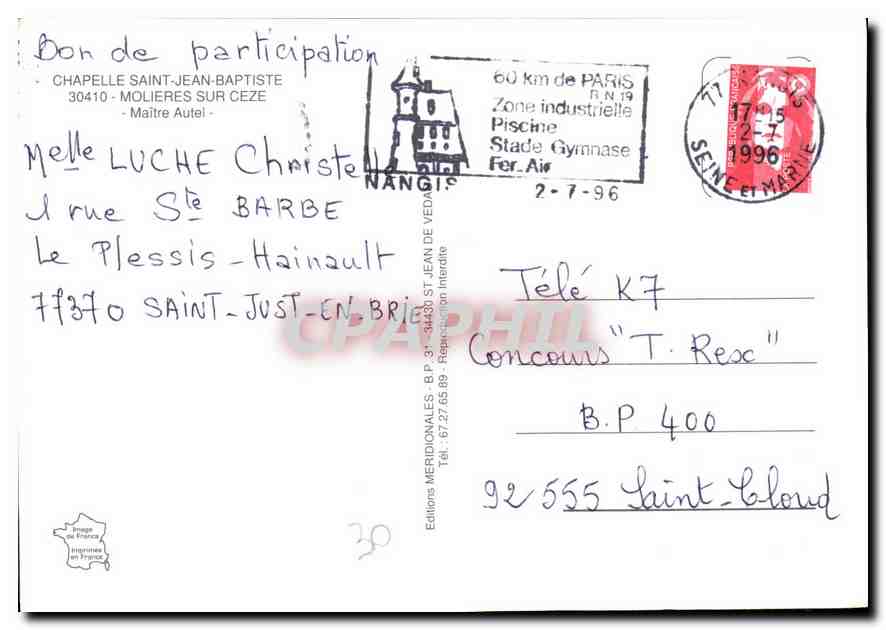 Bon de participation
CHAPELLE SAINT-JEAN-BAPTISTE
30410 - MOLIERES SUR CEZE
- Maître Autel -
Melle LUCHE Christelle
1 rue Ste BARBE
Le Plessis-Hainault
77370 SAINT-JUST-EN-BRIE
60 km de PARIS
R N 19
Zone industrielle
Piscine
Stade Gymnase
Fer. Air
NANGIS
2-7-96
77
17H15
2-7
1996
SEINE ET MARNE
Editions MERIDIONALES - B.P. 31 - 34430 ST JEAN DE VEDAS
Tél. : 67.27.65.89 - Reproduction Interdite
Télé K7
Concours "T. Rex"
B.P. 400
92 555 Saint-Cloud
Image
de France
Imprimée
en France
30
CPAPHIL